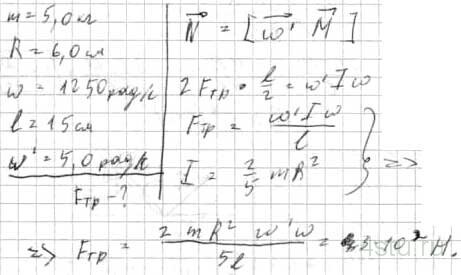 m = 5,0 кг
R = 6,0 см
ω = 1250 рад/с
l = 15 см
ω' = 5,0 рад/с
Fтр - ?
N⃗ = [ω⃗' M⃗]
2 Fтр · l/2 = ω' I ω
Fтр = ω' I ω / l
I = 2/5 mR²
=>
=> Fтр = 2 mR² ω' ω / 5l = 3·10² Н.